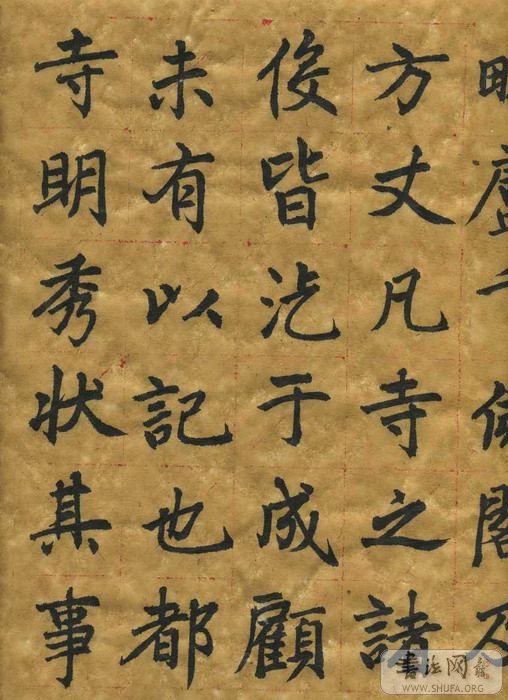 毗廬千佛閣及
方丈凡寺之諸
役皆汔于成顧
未有以記也都
寺明秀狀其事
書法网
WWW.SHUFA.ORG